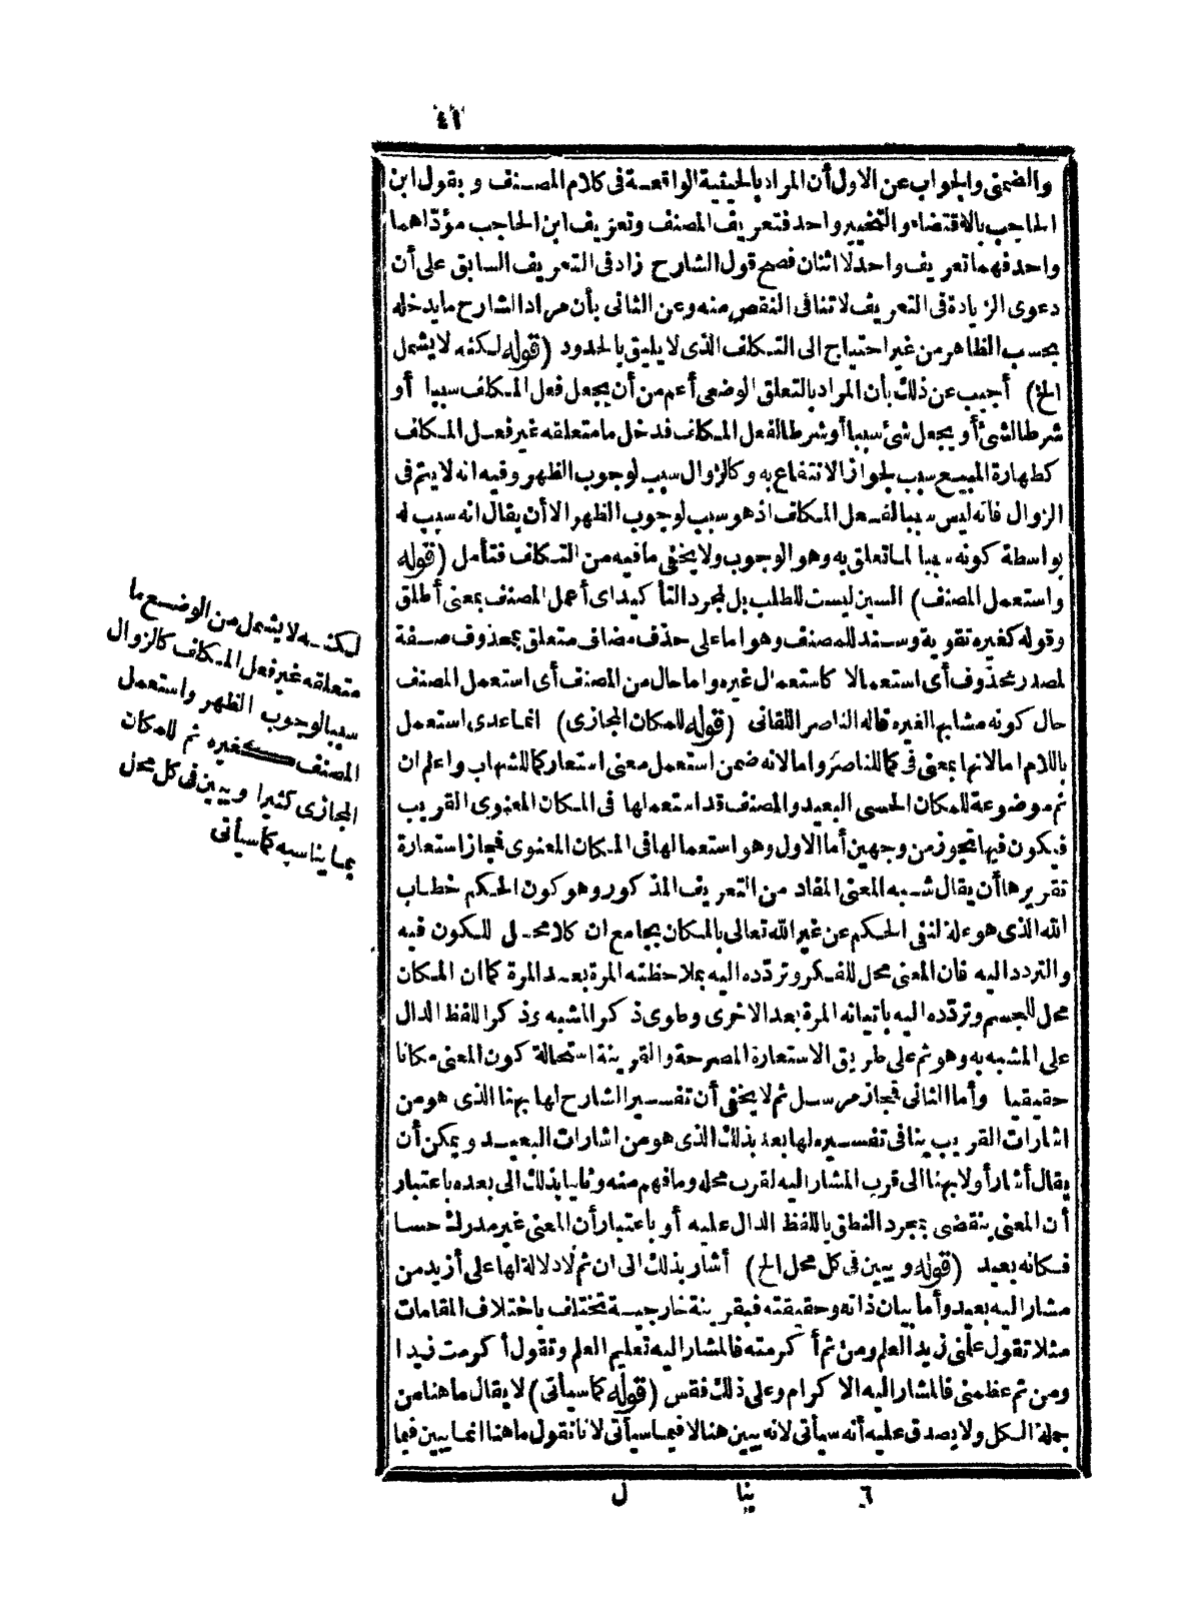 ٤١
والضمنى والجواب عن الاول أن المراد بالحيثية الواقعة فى كلام المصنف و بقول ابن
الحاجب بالاقتضاء والتخيير واحد فتعريف المصنف وتعريف ابن الحاجب مؤدّاهما
واحد فهما تعريف واحد لا اثنان فصح قول الشارح زاد فى التعريف السابق على أن
دعوى الزيادة فى التعريف لا تنافى النقص منه وعن الثانى بأن مراد الشارح ما يدخله
بحسب الظاهر من غير احتياج الى التكلف الذى لا يليق بالحدود (قوله لكنه لا يشمل
الخ) أجيب عن ذلك بأن المراد بالتعلق الوضعى أعم من أن يجعل فعل المكلف سببا أو
شرطا لشئ أو يجعل شئ سببا أو شرطا لفعل المكلف فدخل ما متعلقه غير فعل المكلف
كطهارة المبيع سبب لجواز الانتفاع به وكالزوال سبب لوجوب الظهر وفيه انه لا يتم فى
الزوال فانه ليس سببا لفعل المكلف اذ هو سبب لوجوب الظهر الا أن يقال انه سبب له
بواسطة كونه سببا لما تعلق به وهو الوجوب ولا يخفى ما فيه من التكلف فتأمل (قوله
واستعمل المصنف) السين ليست للطلب بل لمجرد التأكيد اى أعمل المصنف بمعنى أطلق
وقوله كغيره تقوية وسند للمصنف وهو اما على حذف مضاف متعلق بمحذوف صفة
لمصدر محذوف أى استعمالا كاستعمال غيره واما حال من المصنف أى استعمل المصنف
حال كونه مشابها لغيره قاله الناصر اللقانى (قوله للمكان المجازى) انما عدى استعمل
باللام اما لانها بمعنى فى كما للناصر واما لانه ضمن استعمل معنى استعار كما للشهاب واعلم ان
ثم موضوعة للمكان الحسى البعيد والمصنف قد استعملها فى المكان المعنوى القريب
فيكون فيها تجوز من وجهين أما الاول وهو استعمالها فى المكان المعنوى فمجاز استعارة
تقريرها أن يقال شبه المعنى المفاد من التعريف المذكور وهو كون الحكم خطاب
الله الذى هو علة لنفى الحكم عن غير الله تعالى بالمكان بجامع ان كلا محل للكون فيه
والتردد اليه فان المعنى محل للفكر وتردّده اليه بملاحظته المرة بعد المرة كما ان المكان
محل للجسم وتردّده اليه باتيانه المرة بعد الاخرى وطوى ذكر المشبه وذكر اللفظ الدال
على المشبه به وهو ثم على طريق الاستعارة المصرحة والقرينة استحالة كون المعنى مكانا
حقيقيا وأما الثانى فمجاز مرسل ثم لا يخفى أن تفسير الشارح لها بهنا الذى هو من
اشارات القريب ينافى تفسيره لها بعد بذلك الذى هو من اشارات البعيد ويمكن أن
يقال أشار أولا بهنا الى قرب المشار اليه لقرب محله وما فهم منه وثانيا بذلك الى بعده باعتبار
أن المعنى ينقضى بمجرد النطق باللفظ الدال عليه أو باعتبار أن المعنى غير مدرك حسا
فكانه بعيد (قوله ويبين فى كل محل الخ) أشار بذلك الى ان ثم لا دلالة لها على أزيد من
مشار اليه بعيد وأما بيان ذاته وحقيقته فبقرينة خارجية تختلف باختلاف المقامات
مثلا تقول علمنى زيد العلم ومن ثم أكرمته فالمشار اليه تعليم العلم وتقول أكرمت زيدا
ومن ثم عظمنى فالمشار اليه الاكرام وعلى ذلك فقس (قوله كما سيأتى) لا يقال ما هنا من
جملة الكل ولا يصدق عليه أنه سيأتى لانه يبين هنا لا فيما سيأتى لانا نقول ما هنا انما يبين فيما
لكنه لا يشمل من الوضع ما
متعلقه غير فعل المكلف كالزوال
سببا لوجوب الظهر واستعمل
المصنف كغيره ثم للمكان
المجازى كثيرا ويبين فى كل محل
بما يناسبه كما سيأتى
٦ بنا ل